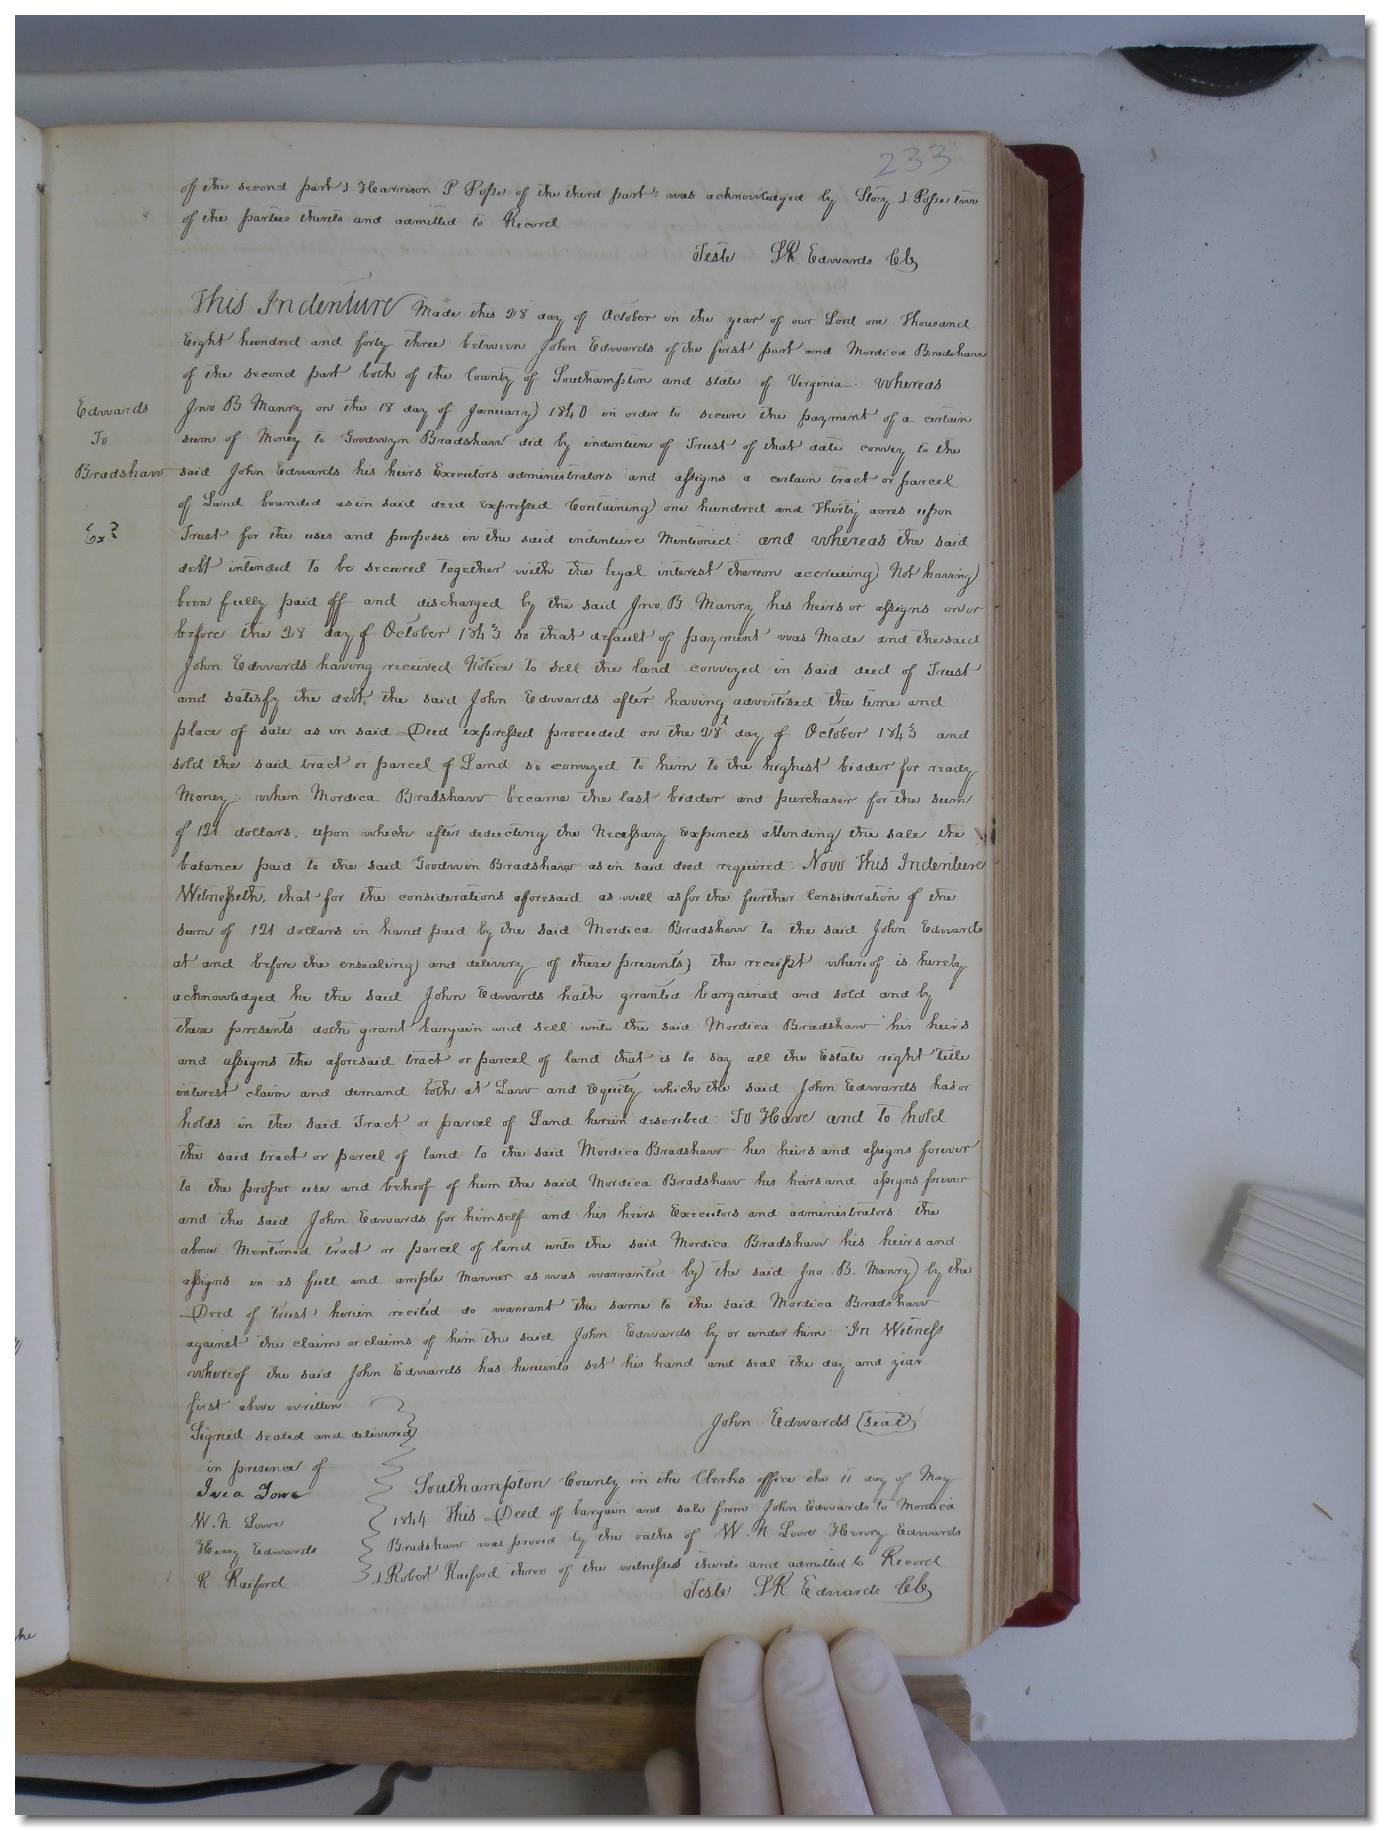 233
of the second part & Harrison P Pope of the third part was acknowledged by Story & Pope two
of the parties thereto and admitted to Record
Teste LR. Edwards Clk
This Indenture Made this 28 day of October in the year of our Lord one Thousand
Eight hundred and forty three between John Edwards of the first part and Mordica Bradshaw
of the second part both of the County of Southampton and state of Virginia. Whereas
Jno B Manry on the 18 day of January 1840 in order to secure the payment of a certain
sum of Money to Goodwyn Bradshaw did by indenture of Trust of that date convey to the
said John Edwards his heirs Executors administrators and assigns a certain tract or parcel
of Land bounded as in said deed expressed Containing one hundred and thirty acres upon
Trust for the uses and purposes in the said indenture Mentioned: and whereas the said
debt intended to be secured together with the legal interest thereon accruing Not having
been fully paid off and discharged by the said Jno. B. Manry his heirs or assigns on or
before the 28 day of October 1843 so that default of payment was Made and the said
John Edwards having received Notice to sell the land conveyed in said deed of Trust
and satisfy the debt, the said John Edwards after having advertised the time and
place of sale as in said Deed expressed proceeded on the 28t day of October 1843 and
sold the said tract or parcel of Land so conveyed to him to the highest bidder for ready
Money when Mordica Bradshaw became the last bidder and purchaser for the sum
of 121 dollars. upon which after deducting the Necessary Expences attending the sale the
balance paid to the said Goodwin Bradshaw as in said deed required. Now This Indenture
Witnesseth, that for the considerations aforesaid as well as for the further Consideration of the
sum of 121 dollars in hand paid by the said Mordica Bradshaw to the said John Edwards
at and before the ensealing and delivery of these presents, the receipt whereof is hereby
acknowledged he the said John Edwards hath granted bargained and sold and by
these presents doth grant bargain and sell unto the said Mordica Bradshaw his heirs
and assigns the aforesaid tract or parcel of land that is to say all the Estate right title
interest claim and demand both at Law and Equity which the said John Edwards has or
holds in the said Tract or parcel of Land herein described: To Have and to hold
the said tract or parcel of land to the said Mordica Bradshaw his heirs and assigns forever
to the proper use and behoof of him the said Mordica Bradshaw his heirs and assigns forever
and the said John Edwards for himself and his heirs Executors and administrators the
above Mentioned tract or parcel of land unto the said Mordica Bradshaw his heirs and
assigns in as full and ample Manner as was warranted by the said Jno. B. Manry by the
Deed of trust herein recited do warrant the same to the said Mordica Bradshaw
against the claim or claims of him the said John Edwards by or under him. In Witness
whereof the said John Edwards has hereunto set his hand and seal the day and year
first above written
John Edwards (seal)
Signed sealed and delivered
in presence of
W. N. Lowe
Henry Edwards
R Raiford
Southampton County in the Clerks office the 11 day of May
1844 This Deed of bargain and sale from John Edwards to Mordica
Bradshaw was proved by the oaths of W. N. Lowe Henry Edwards
& Robert Raiford three of the witnesses thereto and admitted to Record
Teste LR Edwards Clk
Edwards
To
Bradshaw
Exd